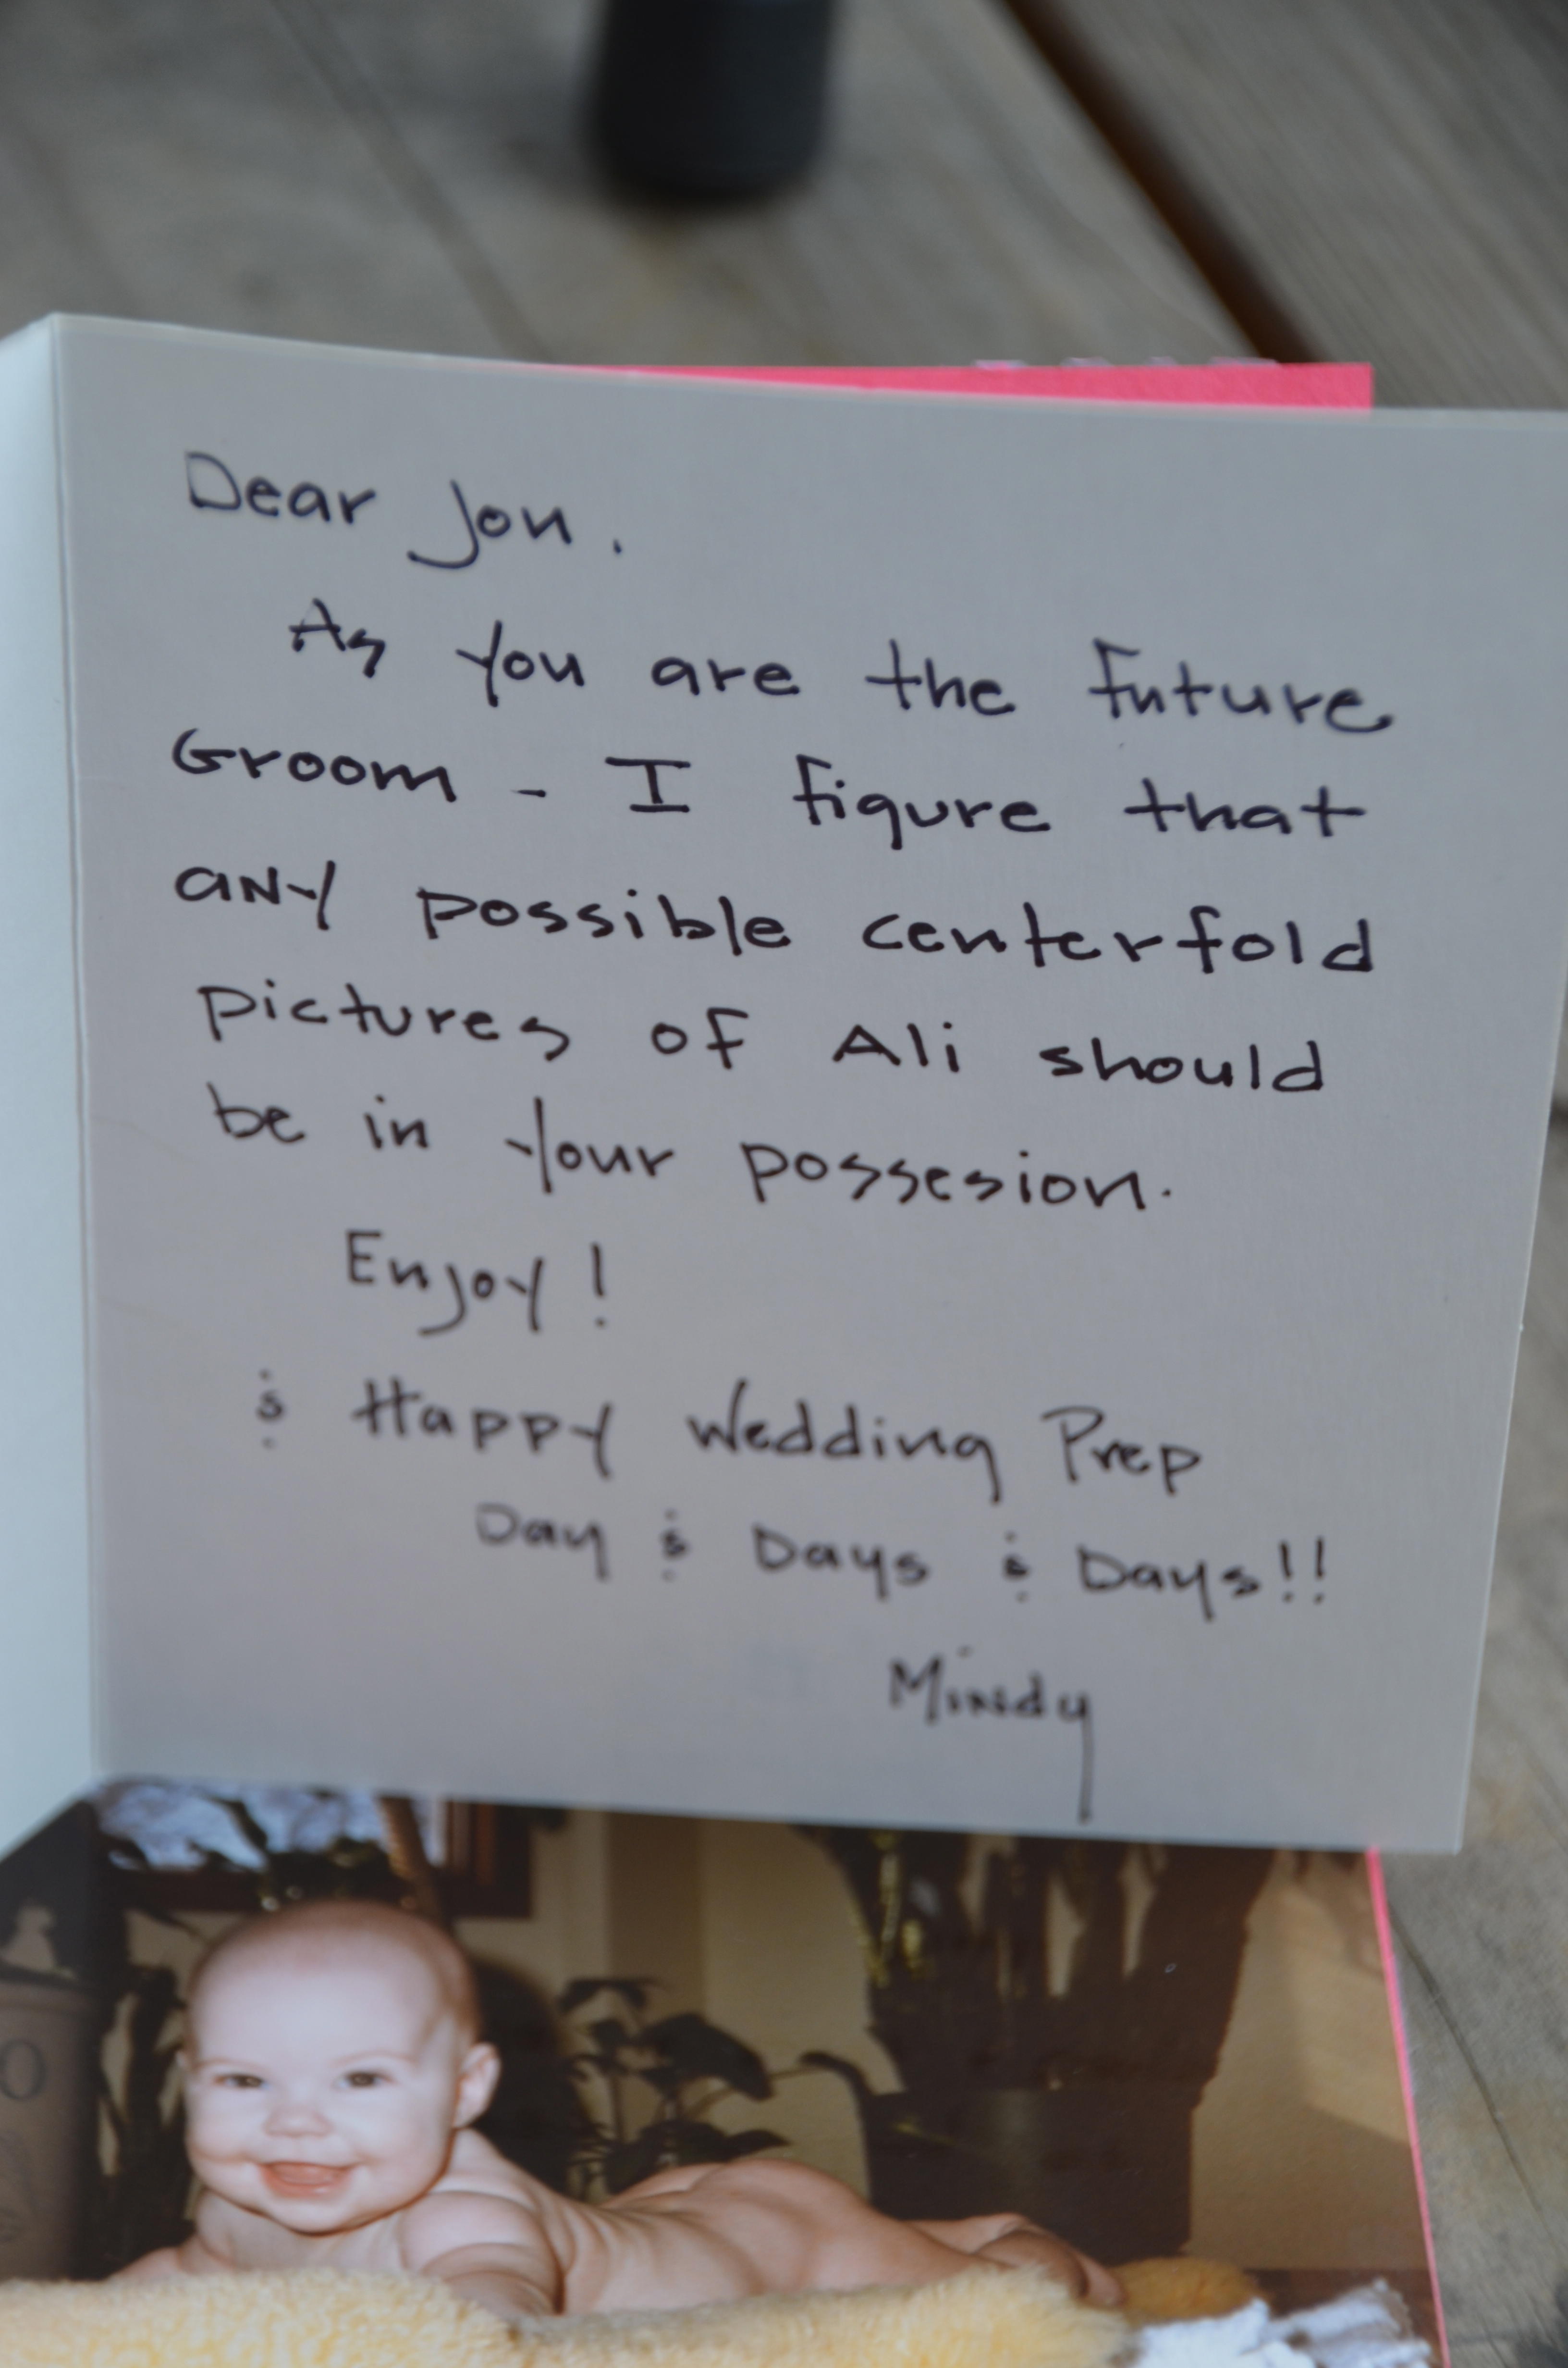 Dear Jon.
As you are the future
Groom - I figure that
any possible centerfold
pictures of Ali should
be in your possesion.
Enjoy!
& Happy Wedding Prep
Day & Days & Days!!
Mindy